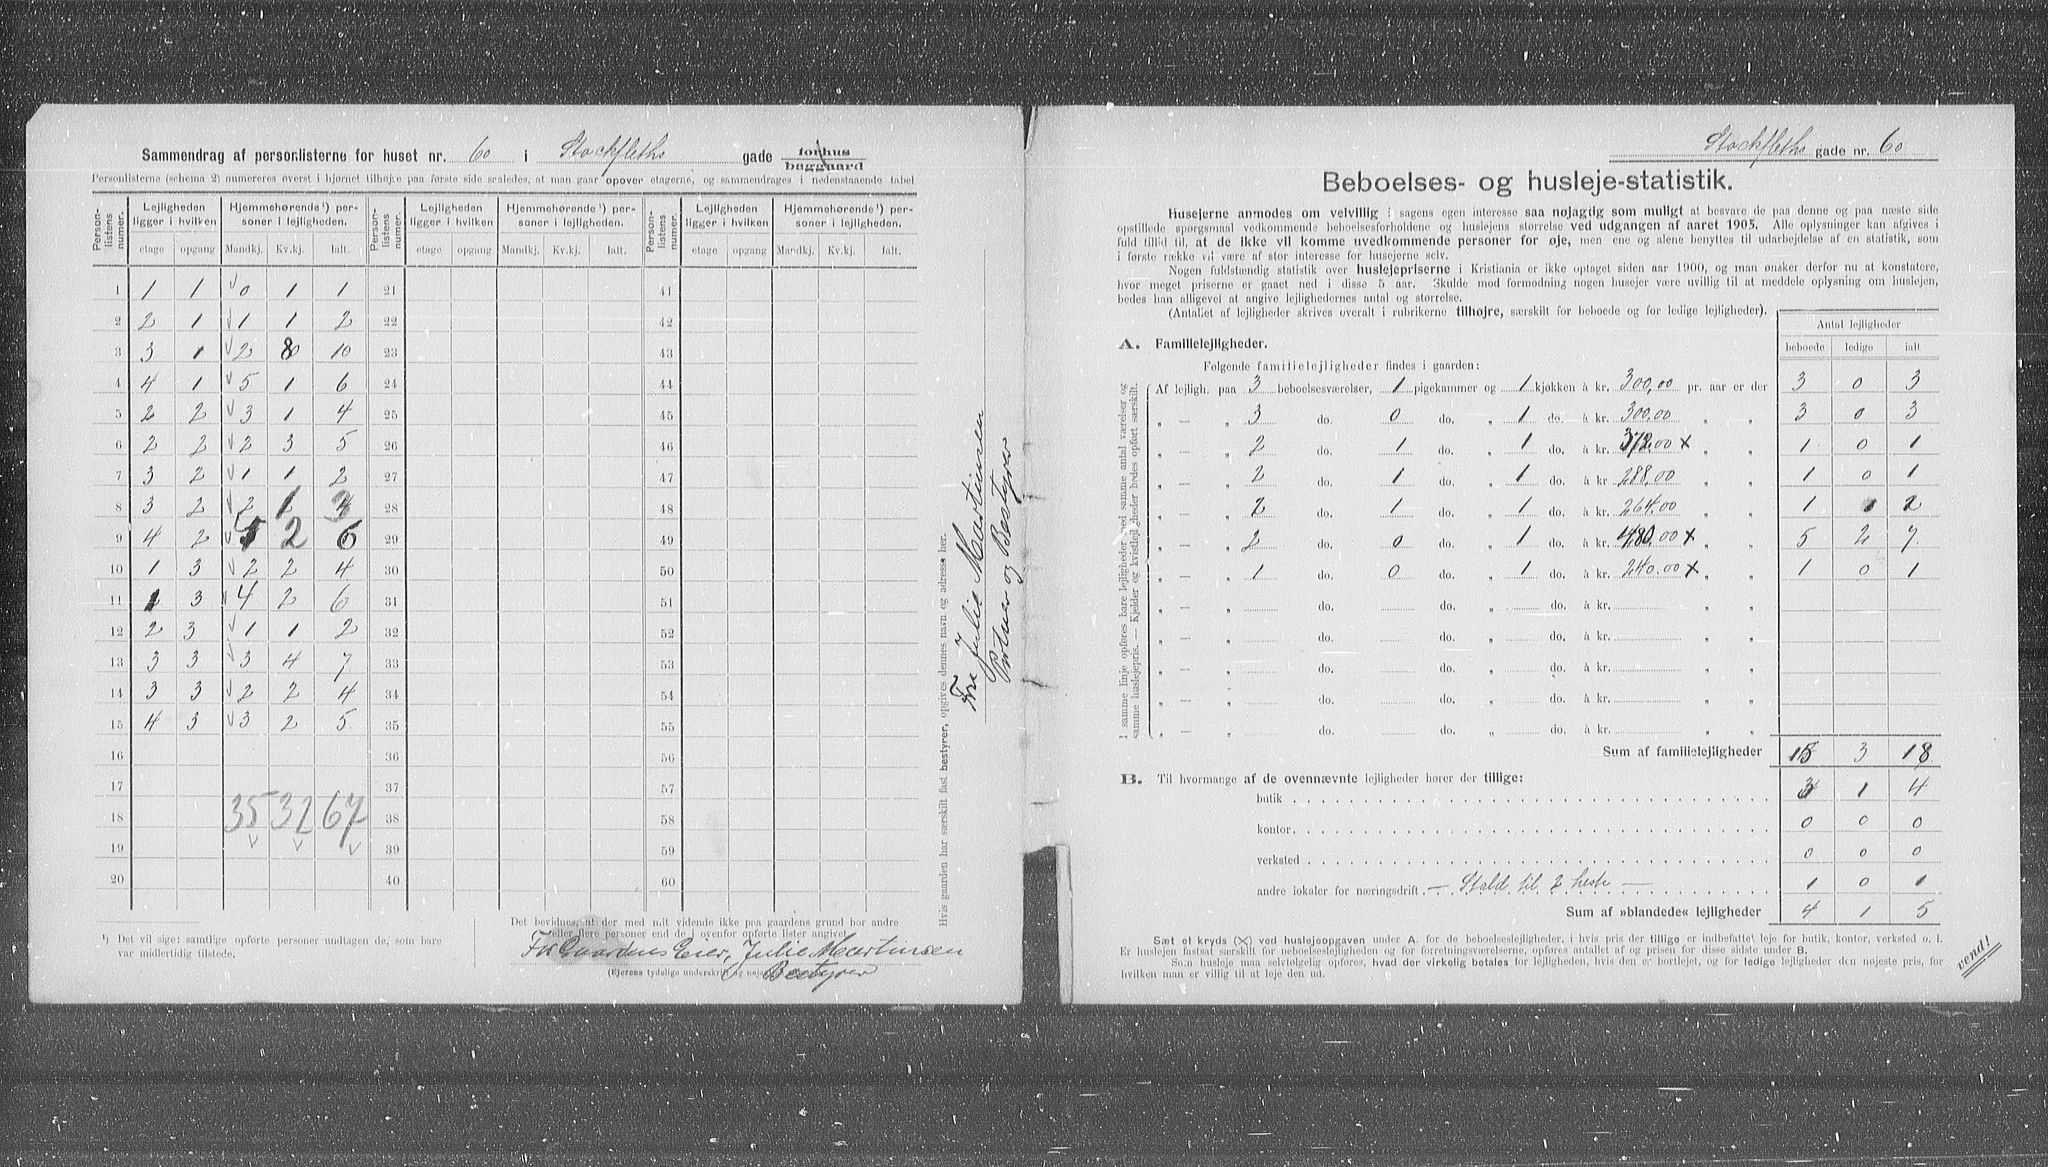 Sammendrag af personlisterne for huset nr. 60 i Stockfleths gade forhus baggaard
Personlisterne (schema 2) numereres øverst i hjørnet tilhøjre paa første side saaledes, at man gaar opover etagerne, og sammendrages i nedenstaaende tabel
Person-listens numer. Lejligheden ligger i hvilken Hjemmehørende¹) personer i lejligheden. Person-listens numer. Lejligheden ligger i hvilken Hjemmehørende¹) personer i lejligheden. Person-listens numer. Lejligheden ligger i hvilken Hjemmehørende¹) personer i lejligheden.
etage opgang Mandkj. Kv.kj. Ialt. etage opgang Mandkj. Kv.kj. Ialt. etage opgang Mandkj. Kv.kj. Ialt.
1 1 1 √ 0 1 1 21 41
2 2 1 √ 1 1 2 22 42
3 3 1 √ 2 8 10 23 43
4 4 1 √ 5 1 6 24 44
5 2 2 √ 3 1 4 25 45
6 2 2 √ 2 3 5 26 46
7 3 2 √ 1 1 2 27 47
8 3 2 √ 2 1 3 28 48
9 4 2 √ 2 6 29 49
10 1 3 √ 2 2 4 30 50
11 3 √ 4 2 6 31 51
12 2 3 √ 1 1 2 32 52
13 3 3 √ 3 4 7 33 53
14 3 3 √ 2 2 4 34 54
15 4 3 √ 3 2 5 35 55
16 36 56
17 37 57
18 35 32 67 38 58
19 √ √ √ 39 59
20 40 60
¹) Det vil sige: samtlige opførte personer undtagen de, som bare
var midlertidig tilstede.
Det bevidnes, at der med mit vidende ikke paa gaardens grund bor andre
eller flere personer end de i ovenfor opførte lister angivet.
For Gaardens Eier, Julie Martinsen
(Ejerens tydelige underskrift og
Bestyrer
Hvis gaarden har særskilt fast bestyrer, opgives dennes navn og adresse her.
Frue Julie Martinsen
Portner og Bestyrer
Stockfleths gade nr. 60
Beboelses- og husleje-statistik.
Husejerne anmodes om velvillig i sagens egen interesse saa nøjagtig som muligt at besvare de paa denne og paa næste side
opstillede spørgsmaal vedkommende beboelsesforholdene og huslejens størrelse ved udgangen af aaret 1905. Alle oplysninger kan afgives i
fuld tillid til, at de ikke vil komme uvedkommende personer for øje, men ene og alene benyttes til udarbejdelse af en statistik, som
i første række vil være af stor interesse for husejerne selv.
Nogen fuldstændig statistik over huslejepriserne i Kristiania er ikke optaget siden aar 1900, og man ønsker derfor nu at konstatere,
hvor meget priserne er gaaet ned i disse 5 aar. Skulde mod formodning nogen husejer være uvillig til at meddele oplysning om huslejen,
bedes han alligevel at angive lejlighedernes antal og størrelse.
(Antallet af lejligheder skrives overalt i rubrikerne tilhøjre, særskilt for beboede og for ledige lejligheder).
Antal lejligheder
beboede ledige ialt
A. Familielejligheder.
Følgende familielejligheder findes i gaarden:
I samme linje opføres bare lejligheder med samme antal værelser og
samme huslejepris. — Kjelder og kvistlejligheder bedes opført særskilt.
Af lejligh. paa 3 beboelsesværelser, 1 pigekammer og 1 kjøkken à kr. 300,00 pr. aar er der 3 0 3
„ — „ 3 do. 0 do. „ 1 do. à kr. 300.00 „ „ 3 0 3
„ — „ 2 do. 1 do. „ 1 do. à kr. 372.00 x „ „ 1 0 1
„ — „ 2 do. 1 do. „ 1 do. à kr. 288,00 „ „ 1 0 1
„ — „ 2 do. 1 do. „ 1 do. à kr. 264.00 „ „ 1 1 2
„ — „ 2 do. 0 do. „ 1 do. à kr. 480.00 x „ „ 5 2 7
„ — „ 1 do. 0 do. „ 1 do. à kr. 240.00 x „ „ 1 0 1
„ — „ do. do. „ do. à kr. „ „
„ — „ do. do. „ do. à kr. „ „
„ — „ do. do. „ do. à kr. „ „
„ — „ do. do. „ do. à kr. „ „
„ — „ do. do. „ do. à kr. „ „
Sum af familielejligheder 15 3 18
B. Til hvormange af de ovennævnte lejligheder hører der tillige:
butik 3 1 4
kontor 0 0 0
verksted 0 0 0
andre lokaler for næringsdrift — Stald til 2 heste — 1 0 1
Sum af »blandede« lejligheder 4 1 5
Sæt et kryds (X) ved huslejeopgaven under A. for de beboelseslejligheder, i hvis pris der tillige er indbefattet leje for butik, kontor, verksted o. l.
Er huslejen fastsat særskilt for beboelseslejligheder og for forretningsværelserne, opføres antallet af og prisen for disse sidste under B.
Som husleje maa selvfølgelig opføres, hvad der virkelig betales for lejligheden, hvis den er bortlejet, og for ledige lejligheder den nøjeste pris, for
hvilken man er villig til at leje den ud.
vend!